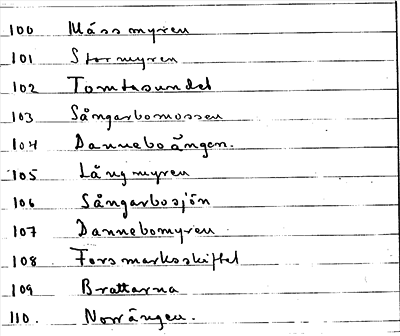 100 Måssmyren
101 Stormyren
102 Tomtasundet
103 Sångarbomossen
104 Danneboängen.
105 Långmyren
106 Sångarbosjön
107 Dannebomyren
108 Forsmarksskiftet
109 Brattarna
110. Norrängen.